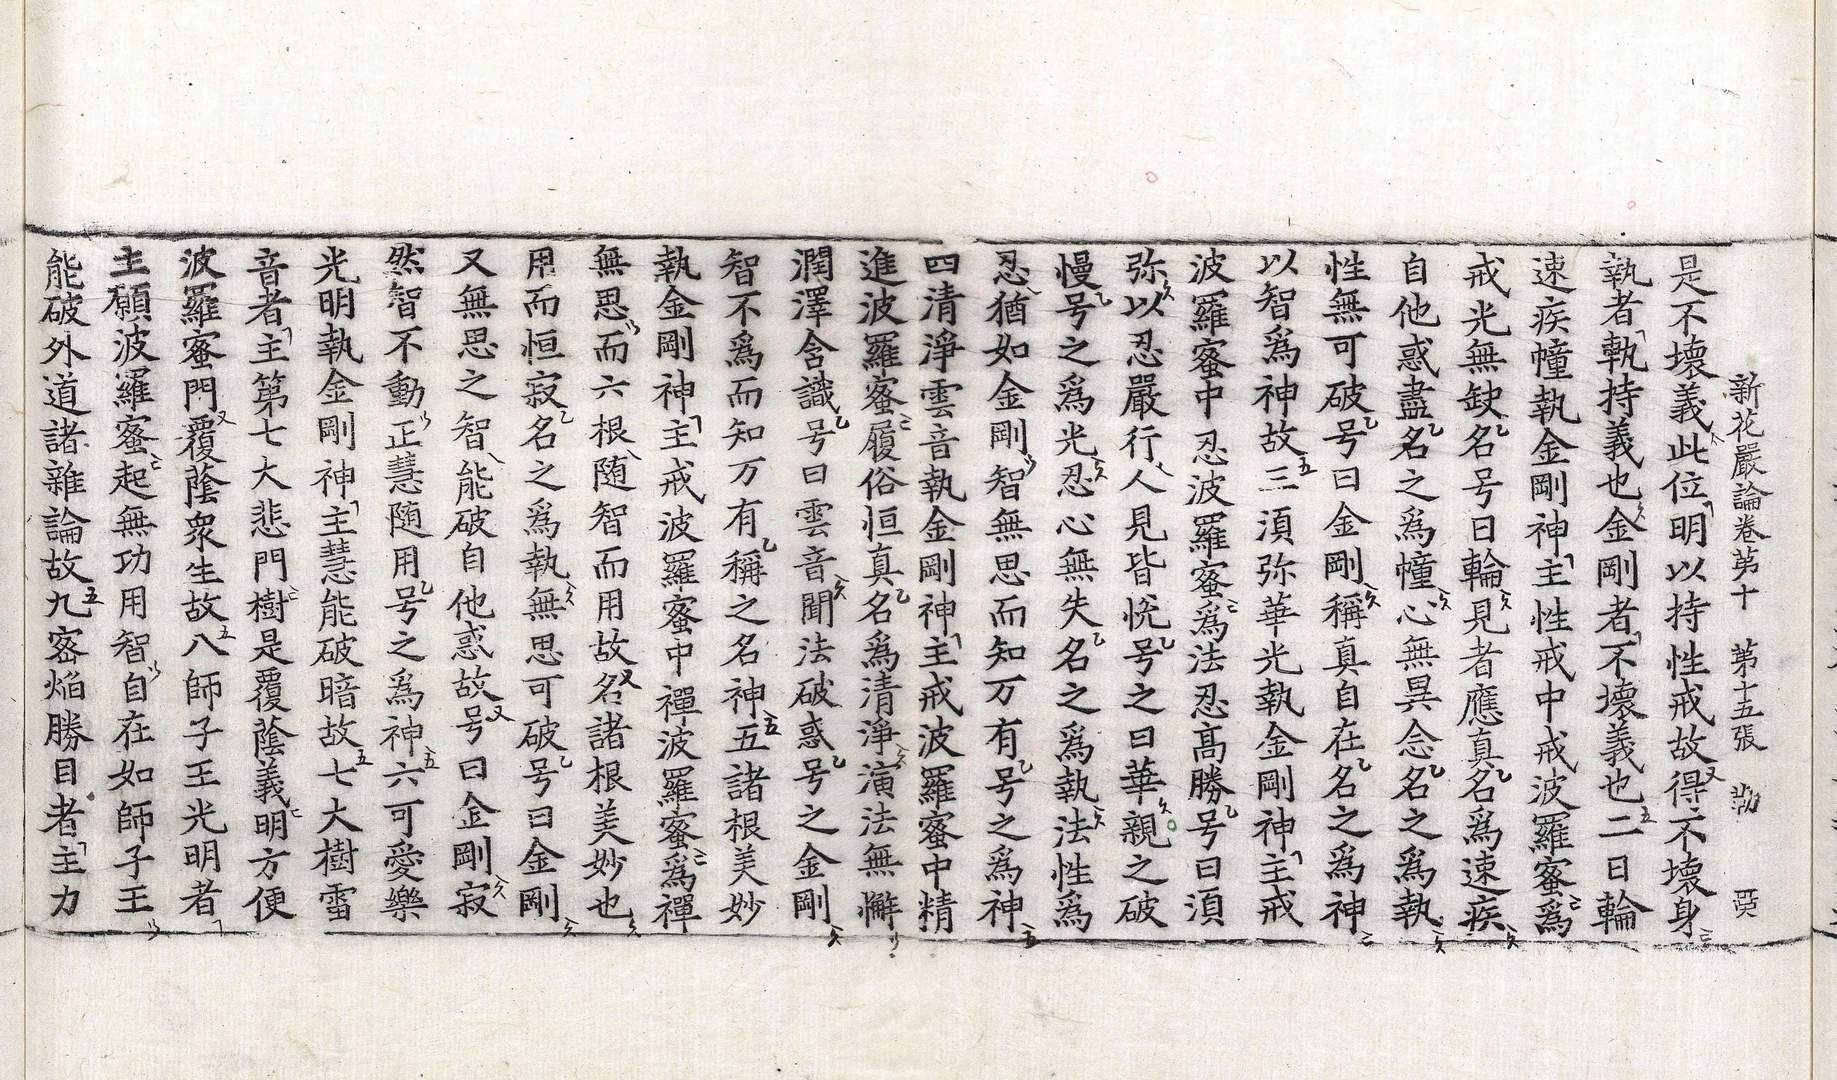 新花嚴論卷第十　第十五張　勒　㒵
是不壞義此位明以持性戒故得不壞身
執者執持義也金剛者不壞義也二日輪
速疾幢執金剛神主性戒中戒波羅蜜爲
戒光無缺名号日輪見者應真名爲速疾
自他惑盡名之爲幢心無異念名之爲執
性無可破号曰金剛稱真自在名之爲神
以智爲神故三湏弥華光執金剛神主戒
波羅蜜中忍波羅蜜爲法忍高勝号曰湏
弥以忍嚴行人見皆恱号之曰華親之破
慢号之爲光忍心無失名之爲執法性爲
忍猶如金剛智無思而知万有号之爲神
四清淨雲音執金剛神主戒波羅蜜中精
進波羅蜜履俗恒真名爲清淨演法無懈
潤澤含識号曰雲音聞法破惑号之金剛
智不爲而知万有稱之名神五諸根美妙
執金剛神主戒波羅蜜中禪波羅蜜爲禪
無思而六根随智而用故名諸根美妙也
用而恒寂名之爲執無思可破号曰金剛
又無思之智能破自他惑故号曰金剛寂
然智不動正慧随用号之爲神六可愛樂
光明執金剛神主慧能破暗故七大樹雷
音者主第七大悲門樹是覆蔭義明方便
波羅蜜門覆蔭衆生故八師子王光明者
主願波羅蜜起無功用智自在如師子王
能破外道諸雜論故九密焰勝目者主力